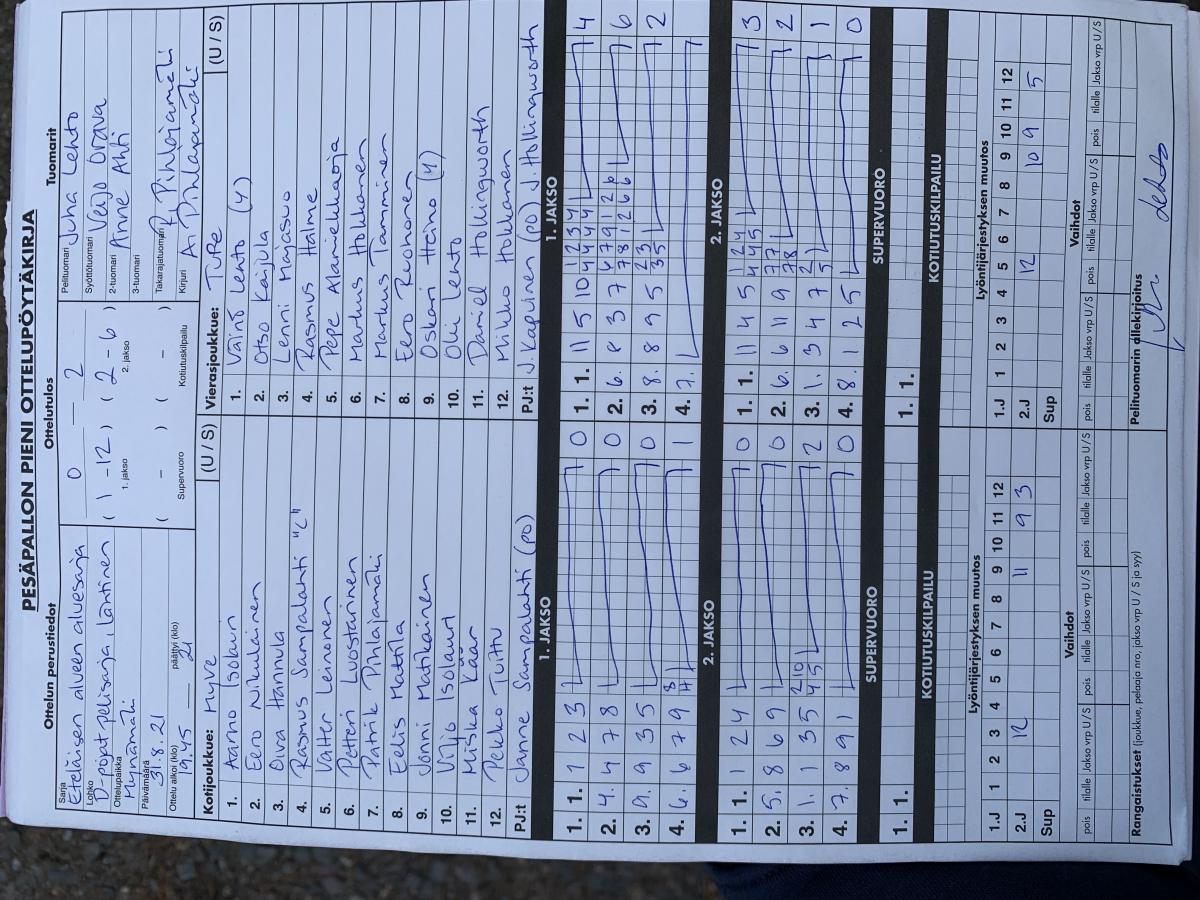 PESÄPALLON PIENI OTTELUPÖYTÄKIRJA
Ottelun perustiedot Ottelutulos Tuomarit
Sarja
Eteläisen alueen aluesarja
Lohko
D-pojat pelisarja, läntinen
Ottelupaikka
Mynämäki
Päivämäärä
31.8.21
Ottelu alkoi (klo) päättyi (klo)
19.45 — 21
0 — 2
( 1 - 12 ) ( 2 - 6 )
1. jakso 2. jakso
( - ) ( - )
Supervuoro Kotiutuskilpailu
Pelituomari Juha Lehto
Syöttötuomari Veijo Orava
2-tuomari Anne Ahti
3-tuomari
Takarajatuomari P. Pihlajamäki
Kirjuri A. Pihlajamäki
Kotijoukkue: Hyve (U / S)
1. Aarno Isokuu
2. Eero Nikulainen
3. Oiva Hannula
4. Rasmus Sampalahti "C"
5. Valtter Leinonen
6. Petteri Luostarinen
7. Patrik Pihlajamäki
8. Eelis Mattila
9. Jonni Matikainen
10. Viljo Isolauri
11. Miska Käär
12. Pekko Tuittu
PJ:t Janne Sampalahti (PO)
Vierasjoukkue: TuPe (U / S)
1. Väinö Lehto (Y)
2. Otso Kaijula
3. Lenni Marjasuo
4. Rasmus Halme
5. Pepe Alaniekkaoja
6. Markus Hokkanen
7. Markus Tamminen
8. Eero Reohonen
9. Oskari Heino (Y)
10. Olli Lehto
11. Daniel Hollingworth
12. Mikko Hokkanen
PJ:t J. Kapuinen (PO) J. Hollingworth
1. JAKSO
1. 1. 1 2 3 0
2. 4. 4 7 8 0
3. 9. 9 3 5 0
4. 6. 6 7 9 8 4 1
1. JAKSO
1. 1. 11 5 10 1 2 3 4 4
4 4 4 4
2. 6. 8 3 7 6 7 9 1 2 6 6
7 8 1 2 6 6
3. 8. 8 9 5 2 3 2
3 5
4. 7.
2. JAKSO
1. 1. 1 2 4 0
2. 5. 8 6 9 0
3. 1. 1 3 5 2 10 2
4 5
4. 7. 8 9 1 0
2. JAKSO
1. 1. 11 4 5 1 2 4 3
4 4 5
2. 6. 6 11 9 7 7 2
7 8
3. 1. 3 4 7 2 1
5
4. 8. 1 2 5 0
SUPERVUORO
1. 1.
KOTIUTUSKILPAILU
SUPERVUORO
1. 1.
KOTIUTUSKILPAILU
Lyöntijärjestyksen muutos
1.J 1 2 3 4 5 6 7 8 9 10 11 12
2.J 12 11 9 3
Sup
Lyöntijärjestyksen muutos
1.J 1 2 3 4 5 6 7 8 9 10 11 12
2.J 12 10 9 5
Sup
Vaihdot
pois tilalle Jakso vrp U / S pois tilalle Jakso vrp U / S pois tilalle Jakso vrp U / S
Vaihdot
pois tilalle Jakso vrp U / S pois tilalle Jakso vrp U / S pois tilalle Jakso vrp U / S
Rangaistukset (joukkue, pelaaja nro, jakso vrp U / S ja syy)
Pelituomarin allekirjoitus
Lehto